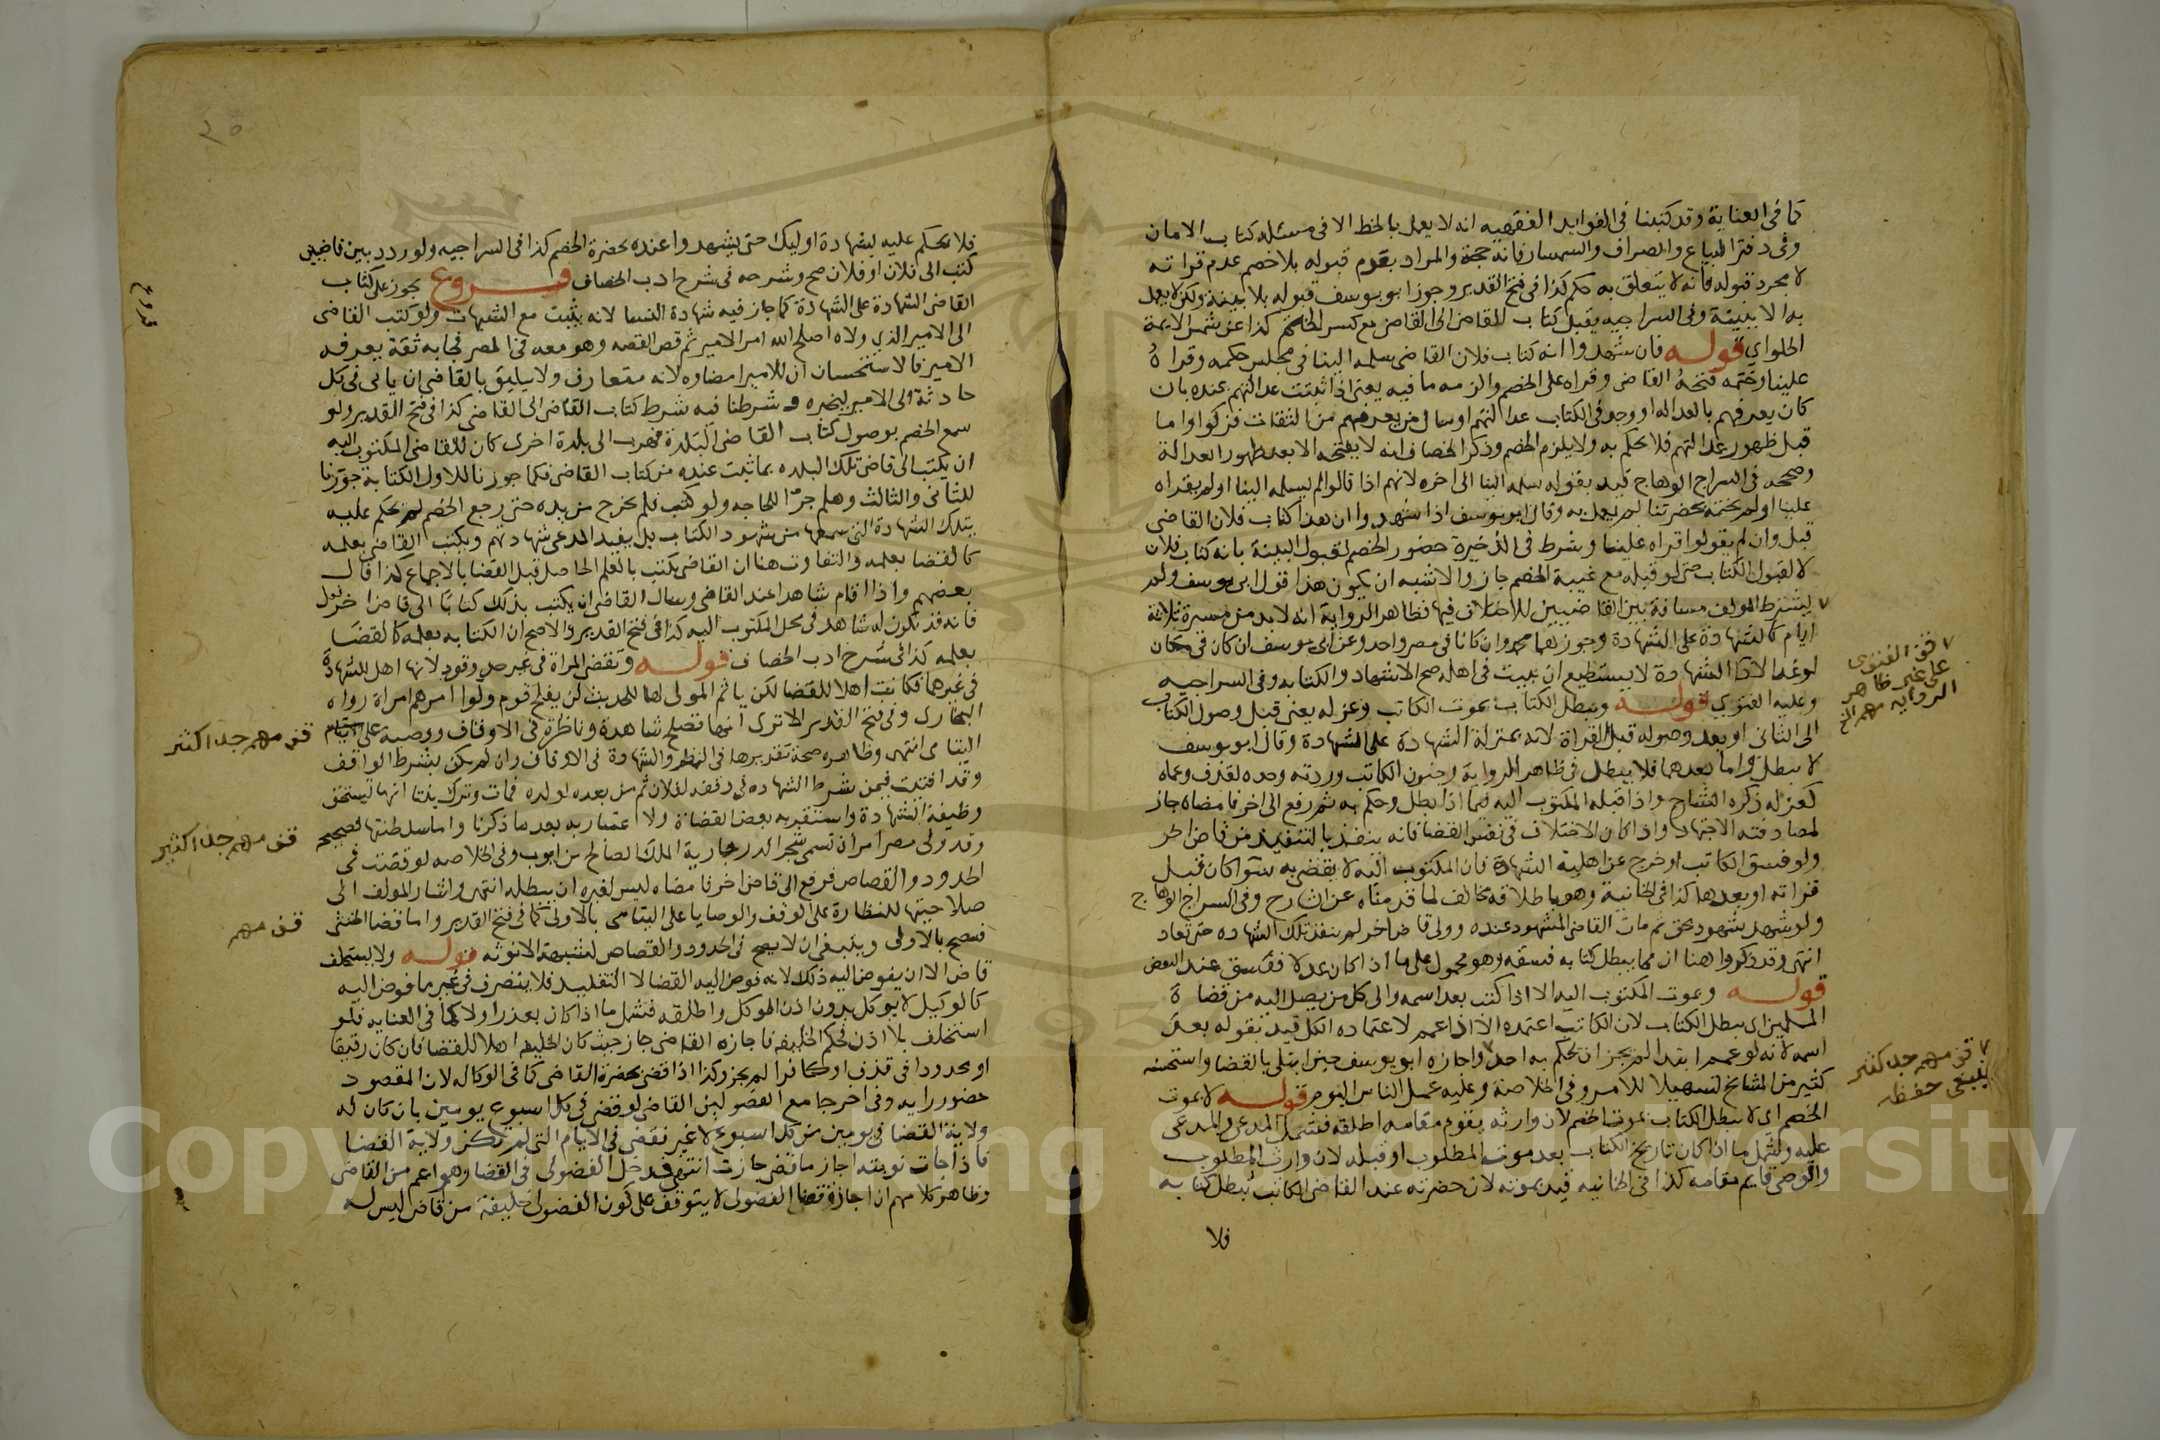 كما في العناية وقد كتبنا في الفوايد الفقهيه انه لا يعمل بالخط الا في مسئلة كتاب الامان
وفي دفتر البياع والصراف والسمسار فانه حجة والمراد بقوله بعدم قبوله بلا خصم عدم قراته
لا مجرد قبوله فانه لا يتعلق به حكم كذا في فتح القدير وجوز ابو يوسف قبوله بلا بينة ولكن لا يعمل
به الا ببينة وفي السراجيه يقبل كتاب القاضي الى القاضي مع كسر الختم كذا عن شمس الايمة
الحلواي قوله فان شهدوا انه كتاب فلان القاضي سلمه الينا في مجلس حكمه وقراه
علينا وختمه فتحه القاضي وقراه على الخصم والزمه ما فيه يعني اذا ثبتت عدالتهم عنده بان
كان يعرفهم بالعداله او وجد في الكتاب عدالتهم او سال من يعرفهم من الثقات فزكوا واما
قبل ظهور عدالتهم فلا يحكم به ولا يلزم الخصم وذكر الخصاف انه لا يفتحه الا بعد ظهور العدالة
وصححه في السراج الوهاج قيد بقوله سلمه الينا الى اخره لانهم اذا قالوا لم يسلمه الينا او لم يقراه
علينا او لم يختمه بحضرتنا لم يعمل به وقال ابو يوسف اذا شهدوا ان هذا كتاب فلان القاضي
قبل وان لم يقولوا قراه علينا وشرط في الذخيرة حضور الخصم لقبول البينة بانه كتاب فلان
لا لقبول الكتاب حتى لو قبله مع غيبة الخصم جاز والاشبه ان يكون هذا قول ابي يوسف ولم
يشترط المولف مسافة بين القاضيين للاختلاف فيها فظاهر الرواية انه لا بد من مسيرة ثلاثة
ايام كالشهادة على الشهادة وجوزهما محمد وان كانا في مصر واحد وعن ابي يوسف ان كان في مكان
لو غدا لاداء الشهادة لا يستطيع ان يبيت في اهله صح الاشهاد والكتابه وفي السراجيه
وعليه الفتوى قوله ويبطل الكتاب بموت الكاتب وعزله يعني قبل وصول الكتاب
الى الثاني او بعد وصوله قبل القراة لانه بمنزلة الشهادة على الشهادة وقال ابو يوسف
لا يبطل واما بعدهما فلا يبطل في ظاهر الرواية وجنون الكاتب وردته وحده لقذف وعماه
كعزله ذكره الشارح واذا قبله المكتوب اليه فيما اذا بطل وحكم به ثم رفع الى اخر فامضاه جاز
لمصادفته الاجتهاد واذا كان الاختلاف في نفس القضا فانه ينفذ بالتنفيذ من قاض اخر
ولو فسق الكاتب او خرج عن اهلية الشهادة فان المكتوب اليه لا يقضي به سوا كان قبل
قراته او بعدها كذا في الخانية وهو باطلاقه مخالف لما قدمناه عن الشارح وفي السراج الوهاج
ولو شهد شهود بحق ثم مات القاضي المشهود عنده وولي قاض اخر لم ينفذ تلك الشهاده حتى تعاد
انتهى وقد ذكروا هنا ان مما يبطل كتابه فسقه وهو محمول على ما اذا كان عدلا ففسق عند البعض
قوله وبموت المكتوب اليه الا اذا كتب بعد اسمه والى كل من يصل اليه من قضاة
المسلمين اي يبطل الكتاب لان الكاتب اعتمده الا اذا عمم لاعتماده الكل قيد بقوله بعد
اسمه لانه لو عمم ابتدا لم يجز ان يحكم به احد واجازه ابو يوسف حين ابتلي بالقضا واستحسنه
كثير من المشايخ تسهيلا للامر وفي الخلاصة وعليه عمل الناس اليوم قوله لا بموت
الخصم اي لا يبطل الكتاب بموت الخصم لان وارثه يقوم مقامه اطلقه فشمل المدعي والمدعى
عليه وشمل ما اذا كان تاريخ الكتاب بعد موت المطلوب او قبله لان وارث المطلوب
والوصي قايم مقامه كذا في الخانيه قيد بموته لان حضرته عند القاضي الكاتب يبطل كتابه
فلا
٧ قف الفتوى
على غير ظاهر
الرواية مهم الخ
٧ قف مهم جدا كثير
ينبغي حفظه
٢٥
فلا يحكم عليه بشهادة اوليك حتى يشهدوا عنده بحضرة الخصم كذا في السراجيه ولو ردد بين قاضيين
كتب الى فلان او فلان صح وشرحه في شرح ادب الخصاف فروع يجوز على كتاب
القاضي الشهادة على الشهادة كما جاز فيه شهادة النسا لانه يثبت مع الشبهات ولو كتب القاضي
الى الامير الذي ولاه اصلح الله امر الامير ثم قص القصه وهو معه في المصر فجا به ثقة يعرفه
الامير فالاستحسان ان للامير امضاوه لانه متعارف ولا يليق بالقاضي ان ياتي في كل
حادثة الى الامير ليخبره وشرطنا فيه شرط كتاب القاضي الى القاضي كذا في فتح القدير ولو
سمع الخصم بوصول كتاب القاضي البلدة فهرب الى بلدة اخرى كان للقاضي المكتوب اليه
ان يكتب الى قاضي تلك البلده بما ثبت عنده من كتاب القاضي فكما جوزنا للاول الكتابة جوزنا
للثاني والثالث وهلم جرا للحاجه ولو كتب فلم يخرج من يده حتى رجع الخصم لم يحكم عليه
بتلك الشهادة التي سمعها من شهود الكتاب بل يعيد المدعي شهادتهم ويكتب القاضي بعلمه
كالقضا بعلمه والتفاوت هنا ان القاضي يكتب بالعلم الحاصل قبل القضا بالاجماع كذا قال
بعضهم واذا اقام شاهدا عند القاضي وسال القاضي ان يكتب بذلك كتابا الى قاض اخر فعل
فانه قد يكون له شاهد في محل المكتوب اليه كذا في فتح القدير والاصح ان الكتابه بعلمه كالقضا
بعلمه كذا في شرح ادب الخصاف قوله وتقضي المراة في غير حد وقود لانها اهل للشهادة
في غيرهما فكانت اهلا للقضا لكن ياثم المولي لها للحديث لن يفلح قوم ولوا امرهم امراة رواه
البخاري وفي فتح القدير الا ترى انها تصلح شاهدة وناظرة في الاوقاف ووصية على ايتام
اليتامى انتهى وظاهره صحة تقديرها في النظر والشهادة في الاوقاف وان لم يكن بشرط الواقف
وقد افتيت فيمن شرط الشهاده في وقفه لفلان ثم من بعده لولده فمات وترك بنتا انها تستحق
وظيفة الشهادة واستقر به بعض القضاة ولا اعتبار به بعد ما ذكرنا واما سلطنتها فصحيح
وقد ولي مصر امراة تسمى شجر الدر جارية الملك الصالح بن ايوب وفي الخلاصه لو قضت في
الحدود والقصاص فرفع الى قاض اخر فامضاه ليس لغيره ان يبطله انتهى واشار المولف الى
صلاحيتها للنظارة على الوقف والوصايا على اليتامى بالاولى كما في فتح القدير واما قضا الخنثى
فيصح بالاولى وينبغي ان لا يصح في الحدود والقصاص لشبهة الانوثه قوله ولا يستخلف
قاض الا ان يفوض اليه ذلك لانه فوض اليه القضا لا التقليد فلا يتصرف في غير ما فوض اليه
كالوكيل لا يوكل بدون اذن الموكل واطلقه فشمل ما اذا كان بعذر اولا كما في العنايه فلو
استخلف بلا اذن فحكم الخليفه فاجازه القاضي جاز حيث كان الخليفه اهلا للقضا فان كان رقيقا
او محدودا في قذف او كافرا لم يجز وكذا اذا قضى بحضرة القاضي كما في الوكاله لان المقصود
حضور رايه وفي اخر جامع الفصولين القاضي لو قضى في كل اسبوع يومين بان كان له
ولاية القضا في يومين من كل اسبوع لا غير فقضى في الايام التي لم تكن ولاية القضا
فاذا جات نوبته اجاز ما قضى جازت انتهى فدخل الفضولي في القضا وهو اعم من القاضي
وظاهر كلامهم ان اجازة قضا الفضولي لا يتوقف على كون الفضولي خليفة من قاض ليس له
فروع
قف مهم جدا كثير
قف مهم جدا كثير
قف مهم